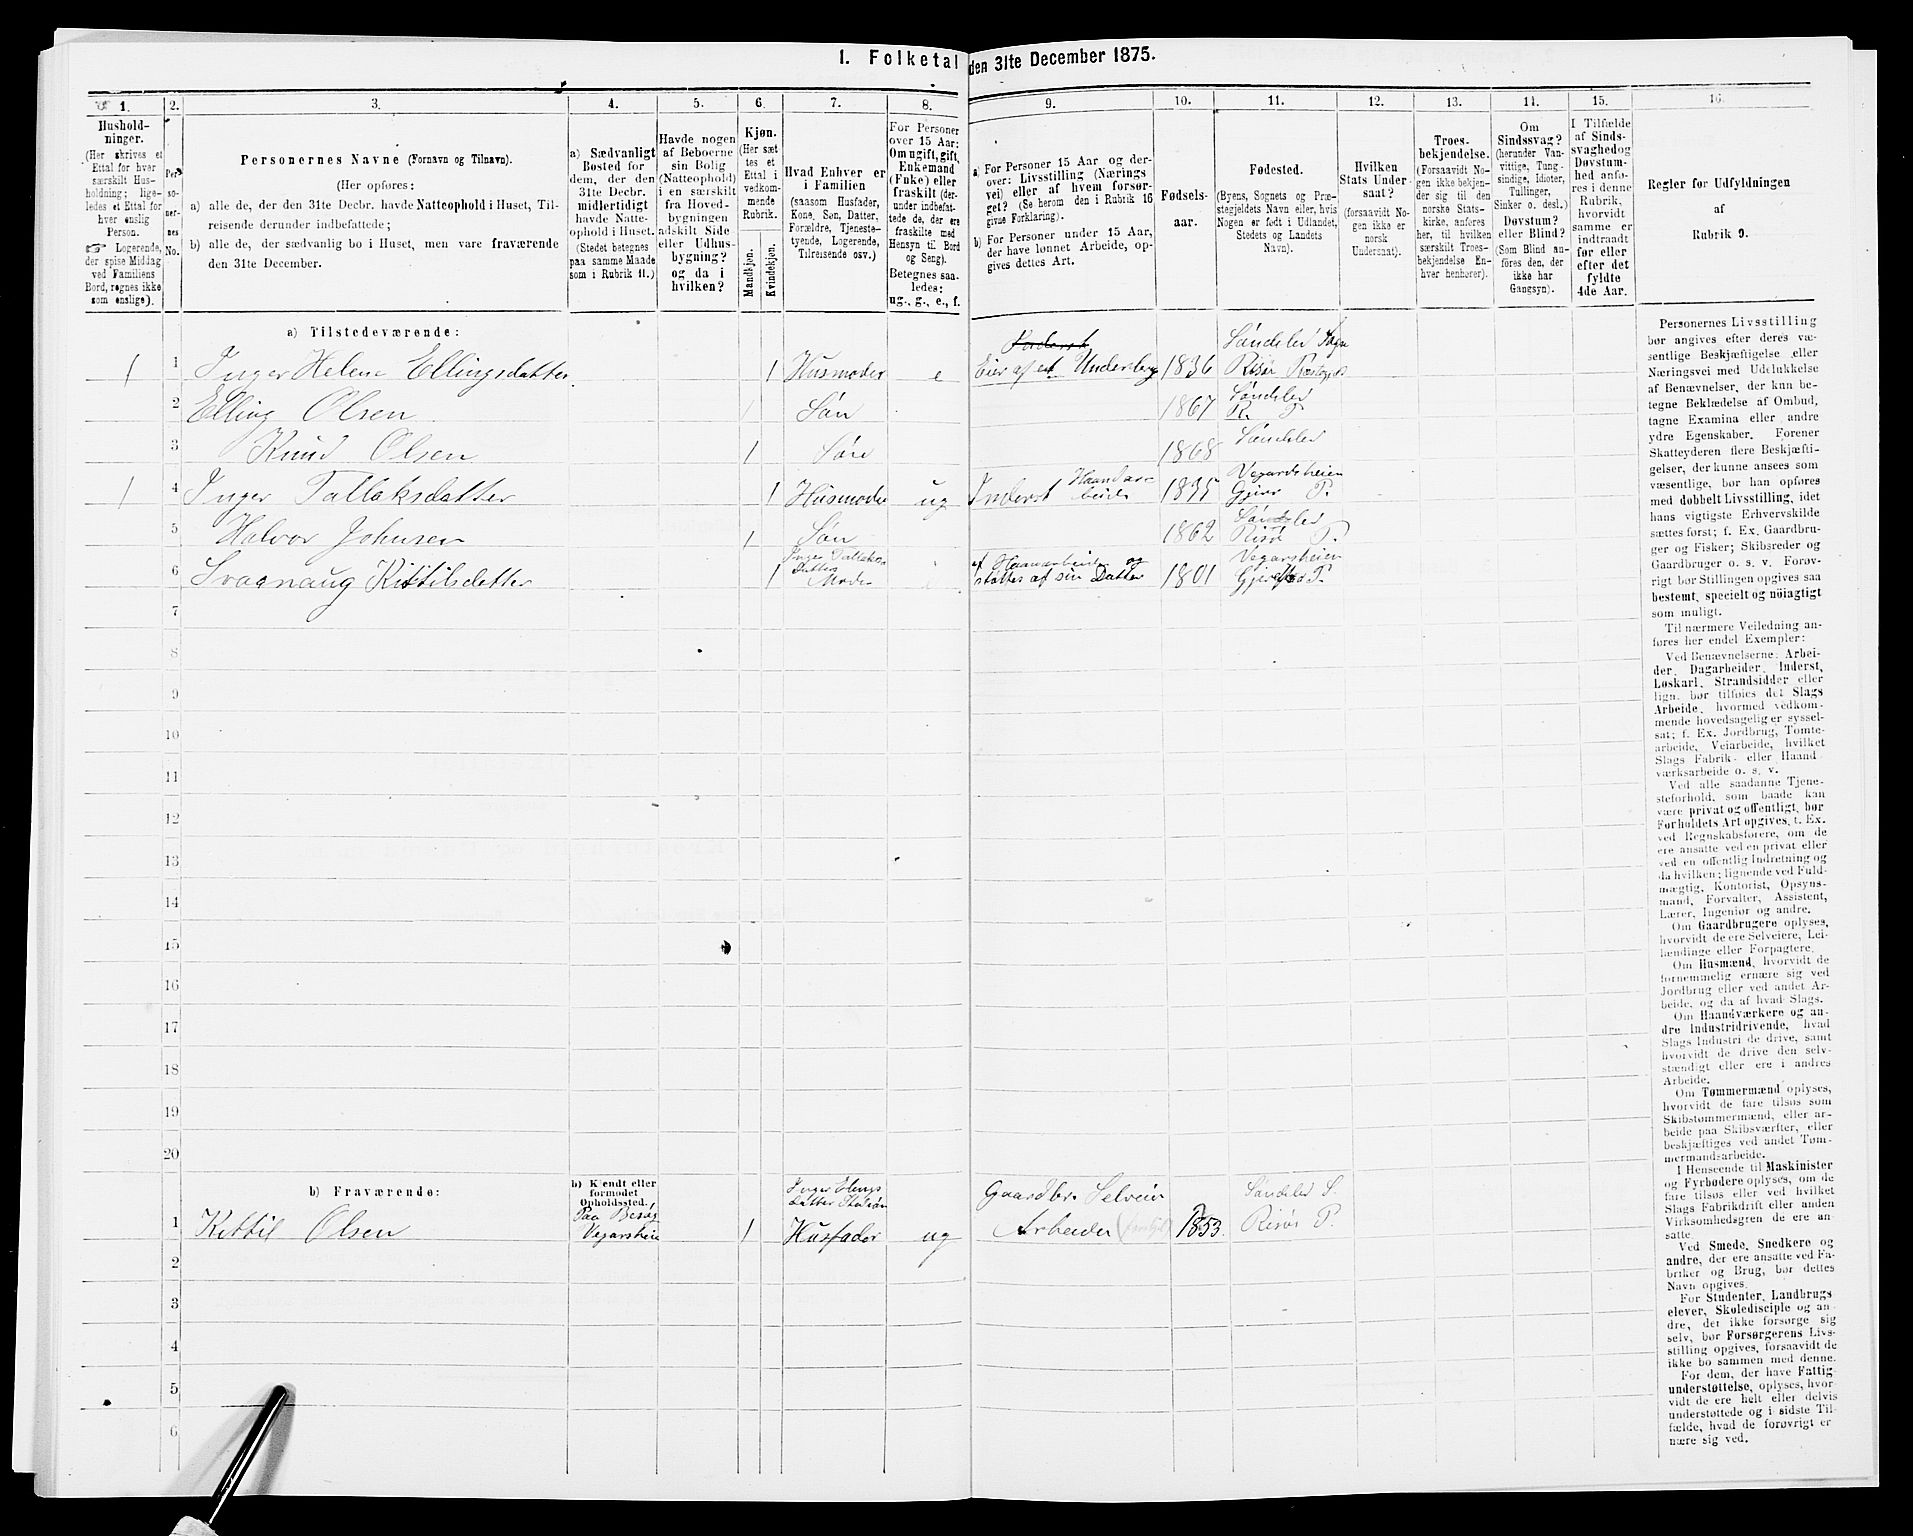 1. Folketal den 31te December 1875.
1. 2. 3. 4. 5. 6. 7. 8. 9. 10. 11. 12. 13. 14. 15. 16.
Hushold-
ninger.
(Her skrives et
Ettal for hver
særskilt Hus-
holdning; lige-
ledes et Ettal for
hver enslig
Person.
☞ Logerende,
der spise Middag
ved Familiens
Bord, regnes ikke
som enslige).
Per-
so-
ner-
nes
No.
Personernes Navne (Fornavn og Tilnavn).
(Her opføres:
a) alle de, der den 31te Decbr. havde Natteophold i Huset, Til-
reisende derunder indbefattede;
b) alle de, der sædvanlig bo i Huset, men vare fraværende
den 31te December.
a) Sædvanligt
Bosted for
dem, der den
31te Decbr.
midlertidigt
havde Natte-
ophold i Huset.
(Stedet betegnes
paa samme Maade
som i Rubrik 11.)
Havde nogen
af Beboerne
sin Bolig
(Natteophold)
i en særskilt
fra Hoved-
bygningen
adskilt Side-
eller Udhus-
bygning?
og da i
hvilken?
Kjøn.
(Her sæt-
tes et
Ettal i
vedkom-
mende
Rubrik.
Mandkjøn.
Kvindekjøn.
Hvad Enhver er
i Familien
(saasom Husfader,
Kone, Søn, Datter,
Forældre, Tjeneste-
tyende, Logerende,
Tilreisende osv.)
For Personer
over 15 Aar:
Om ugift, gift,
Enkemand
(Enke) eller
fraskilt (der-
under indbefat-
tede de, der ere
fraskilte med
Hensyn til Bord
og Seng).
Betegnes saa-
ledes:
ug., g., e., f.
a) For Personer 15 Aar og der-
over: Livsstilling (Nærings-
vei) eller af hvem forsør-
get? (Se herom den i Rubrik 16
givne Forklaring).
b) For Personer under 15 Aar,
der have lønnet Arbeide, op-
gives dettes Art.
Fødsels-
aar.
Fødested.
(Byens, Sognets og Præ-
stegjeldets Navn eller, hvis
Nogen er født i Udlandet,
Stedets og Landets
Navn).
Hvilken
Stats Under-
saat?
(forsaavidt No-
gen ikke er
norsk
Undersaat).
Troes-
bekjendelse.
(Forsaavidt No-
gen ikke bekjen-
der sig til den
norske Stats-
kirke, anføres
her, til hvilken
særskilt Troes-
bekjendelse En-
hver henhører).
Om
Sindssvag?
(herunder Van-
vittige, Tung-
sindige, Idioter,
Tullinger,
Sinker o. desl.)
Døvstum?
eller Blind?
(Som Blind an-
føres den, der
ikke har
Gangsyn).
I Tilfælde
af Sinds-
svaghed og
Døvstum-
hed anfø-
res i denne
Rubrik,
hvorvidt
samme er
indtraadt
før eller
efter det
fyldte
4de Aar.
Regler for Udfyldningen
af
Rubrik 9.
a) Tilstedeværende:
1 1 Inger Helene Ellingsdatter 1 Husmoder e Eier af et 1836 Søndeler Sogn Risør
2 Elling Olsen 1 Søn 1867 Søndeler R. P.
3 Knud Olsen 1 Søn 1868 Søndeler
1 4 Inger Tallaksdatter 1 Husmoder ug Inderst Haandar beider 1835 Vegardsheien P.
5 Halvor Johnsen 1 Søn 1862 Søndeler Risør P.
6 Kittilsdatter 1 Inger Tallaks Datters Moder støttes af sin Datter 1801 Vegarsheien P.
7
8
9
10
11
12
13
14
15
16
17
18
19
20
b) Fraværende:
b) Kjendt eller
formodet
Opholdssted.
1 Kittil Olsen Paa Vegarsheien 1 Inger Datter Husfader ug Gaardbr. Selveier Arbeider 1853. Søndeler S. Risør P.
2
3
4
5
6
Personernes Livsstilling
bør angives efter deres væ-
sentlige Beskjæftigelse eller
Næringsvei med Udelukkelse
af Benævnelser, der kun be-
tegne Beklædelse af Ombud,
tagne Examina eller andre
ydre Egenskaber. Forener
Skatteyderen flere Beskjæfti-
gelser, der kunne ansees som
væsentlige, bør han opføres
med dobbelt Livsstilling, idet
hans vigtigste Erhvervskilde
sættes først; f. Ex. Gaardbru-
ger og Fisker; Skibsreder og
Gaardbruger o. s. v. Forøv-
rigt bør Stillingen opgives saa
bestemt, specielt og nöiagtigt
som muligt.
Til nærmere Veiledning an-
føres her endel Exempler:
Ved Benævnelserne: Arbei-
der, Dagarbeider, Inderst,
Løskarl, Strandsidder eller
lign. bør tilføies det Slags
Arbeide, hvormed vedkom-
mende hovedsagelig er syssel-
sat; f. Ex. Jordbrug, Tomte-
arbeide, Veiarbeide, hvilket
Slags Fabrik- eller Haand-
værksarbeide o. s. v.
Ved alle saadanne Tjene-
steforhold, som baade kan
være privat og offentligt, bør
Forholdets Art opgives, t. Ex.
ved Regnskabsførere, om de
ere ansatte ved en privat eller
ved en offentlig Indretning og
da hvilken; lignende ved Fuld-
mægtig, Kontorist, Opsyns-
mand, Forvalter, Assistent,
Lærer, Ingeniør og andre.
Om Gaardbrugere oplyses,
hvorvidt de ere Selveiere, Lei-
lændinge eller Forpagtere.
Om Husmænd, hvorvidt de
fornemmelig ernære sig ved
Jordbrug eller ved andet Ar-
beide, og da af hvad Slags.
Om Haandværkere og an-
dre Industridrivende, hvad
Slags Industri de drive, samt
hvorvidt de drive den selv-
stændigt eller ere i andres
Arbeide.
Om Tømmermænd oplyses,
hvorvidt de fare tilsøs som
Skibstømmermænd, eller ar-
beide paa Skibsværfter, eller
beskjæftiges ved andet Tøm-
mermandsarbeide.
I Henseende til Maskinister
og Fyrbødere oplyses, om de
fare tilsøs eller ved hvilket
Slags Fabrikdrift eller anden
Virksomhed gren de ere an-
satte.
Ved Smede, Snedkere og
andre, der ere ansatte ved Fa-
briker og Brug, bør dettes
Navn opgives.
For Studenter, Landbrugs-
elever, Skoledisciple og an-
dre, der ikke forsørge sig
selv, bør Forsørgerens Livs-
stilling opgives, forsaavidt de
ikke bo sammen med denne.
For dem, der have Fattig-
understøttelse, oplyses, hvor-
vidt de ere helt eller delvis
understøttede og i sidste Til-
fælde, hvad de forøvrigt er-
nære sig ved.